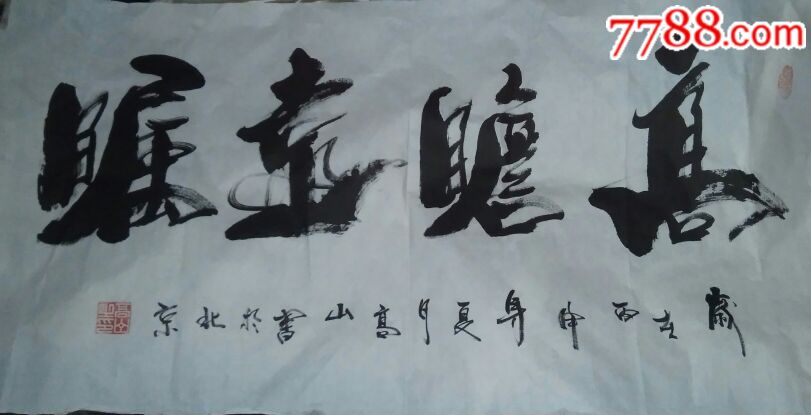 7788.com
高瞻遠矚
歲在丙申年夏月高山書於北京